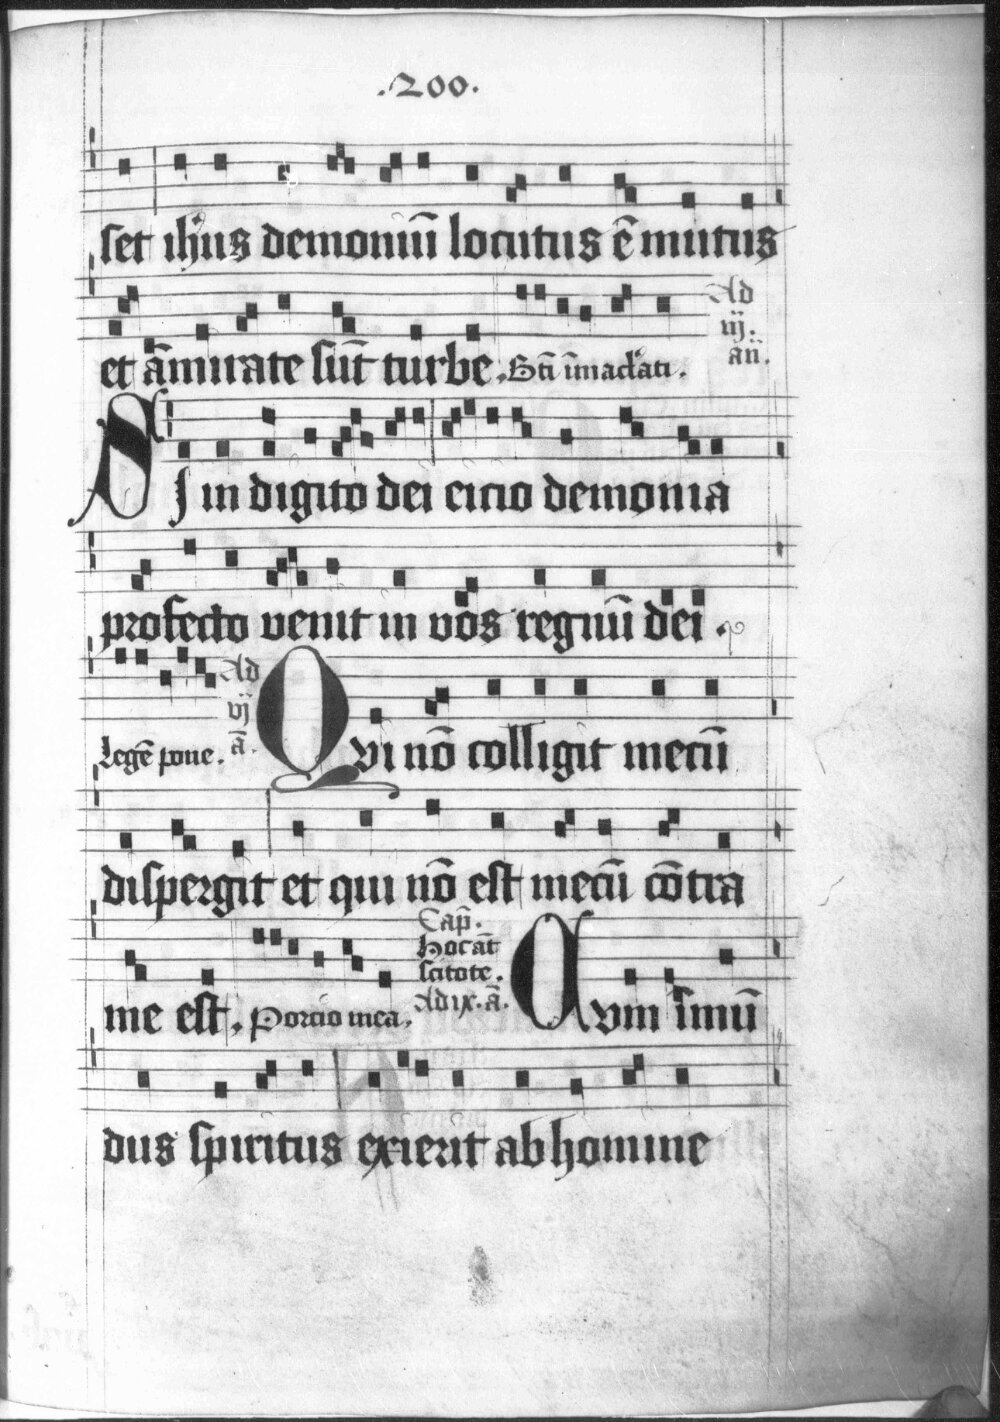 .200.
set ih̅us demoniū locutus ē mutus
et ām̄irate sūt turbe. Bt̄i īmaculati.
Ad
iij.
an̄.
Si in digito dei eicio demonia
profecto venit in vos regnū dei.
Legē pone.
Ad
vj
ā.
Qvi nō colligit mecū
dispergit et qui nō est mecū cōtra
me est. Porcio mea.
Cap̄.
Hoc āt
scitote.
Ad ix. ā.
Cvm īmū
dus spiritus exierit ab homine